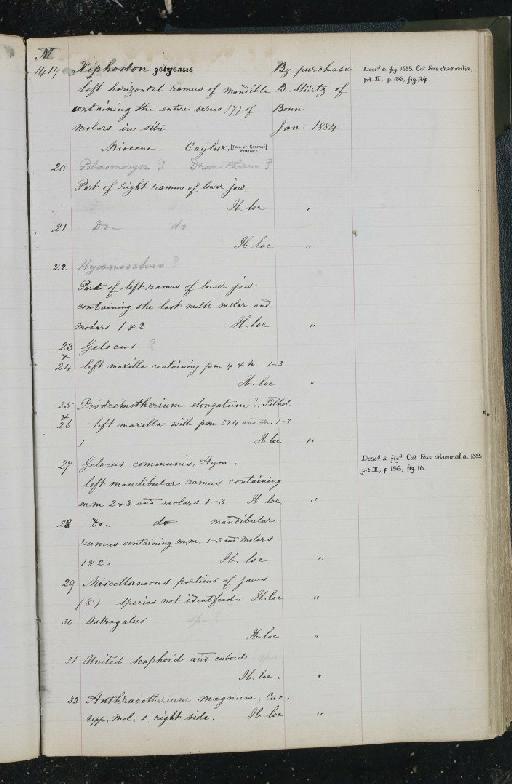 M
Xiphodon gelyensis By purchase
left horizontal ramus of mandible B. Stürtz of
containing the entire series (7) of Bonn
molars in situ Jan. 1884
Miocene Caylux
20
Part of right ramus of lower jaw
Ib. loc "
21 Do do
Ib. loc "
22 Hyaemoschus ?
Part of left ramus of lower jaw
containing the last milk molar and
molars 1 & 2 Ib. loc "
23 Gelocus ?
&
24 left maxilla containing pm 4 & m 1-3
Ib. loc "
25 Prodremotherium elongatum ? Filhol
&
26 left maxilla with pm
Ib. loc "
27 Gelocus communis, Aym.
left mandibular ramus containing
m.m 2 & 3 and molars 1-3 Ib. loc "
28 Do. do mandibular
ramus containing m.m. 1-3 and molars
1 & 2. Ib. loc "
29 Miscellaneous portions of jaws
(8) species not identified Ib. loc "
30 Astragalus sp ?
Ib. loc "
31 United scaphoid and cuboid
Ib. loc. "
32 Anthracotherium magnum, Cuv.
upp. mol. 2 right side. Ib. loc "
Descd & figd 1885. Cat. Foss. Mammalia,
pt. II, p.
Descd & figd Cat. Foss. Mammalia. 1885
pt. II, p. 156, fig. 16.